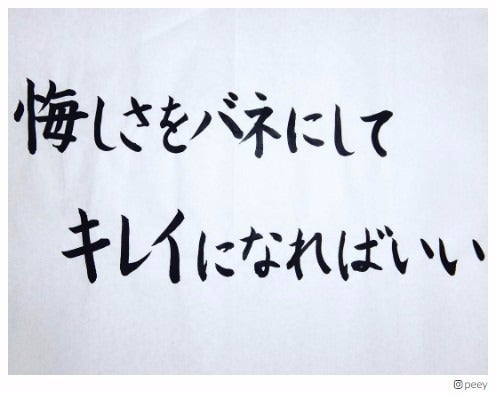 悔しさをバネにして
キレイになればいい
peey